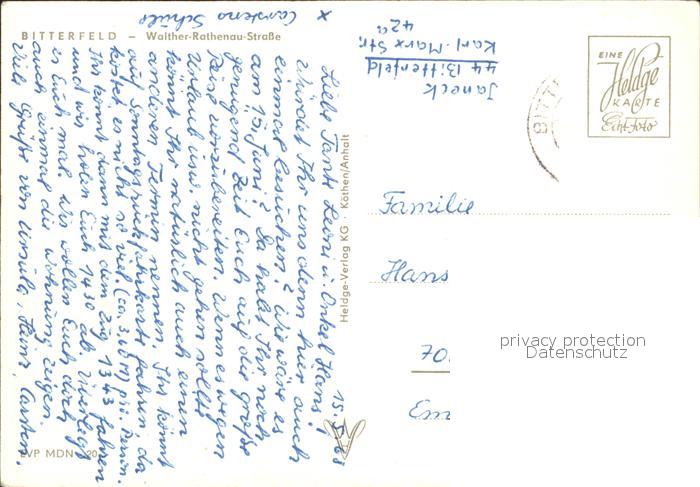 BITTERFELD – Walther-Rathenau-Straße
x Carstens Schule
15. 68
Liebe Tante Leni u. Onkel Hans!
Würdet Ihr uns denn hier auch
einmal besuchen? Wie wäre es
am 15. Juni? Da habt Ihr noch
genügend Zeit Euch auf die große
Reise vorzubereiten. Wenn es wegen
Urlaub usw. nicht gehen sollte
könnt Ihr natürlich auch einen
anderen Termin nennen. Ihr könnt
auf Sonntagsrückfahrkarte fahren, da
kostet es nicht so viel. (ca. 3,60 M pro Person.
Ihr könnt dann mit dem Zug 13 43 fahren
und wir holen Euch 14 30 ab. Überlegt
es Euch mal. Wir wollen Euch doch
auch einmal die Wohnung zeigen.
Viele Grüße von Ursula, Heinz, Carsten.
Heldge-Verlag KG · Köthen/Anhalt
EVP MDN 20
Janeck
44 Bitterfeld
Karl-Marx Str.
42a
EINE
Heldge
KARTE
Echt Foto
BITT
Familie
Hans
70
Em
privacy protection
Datenschutz